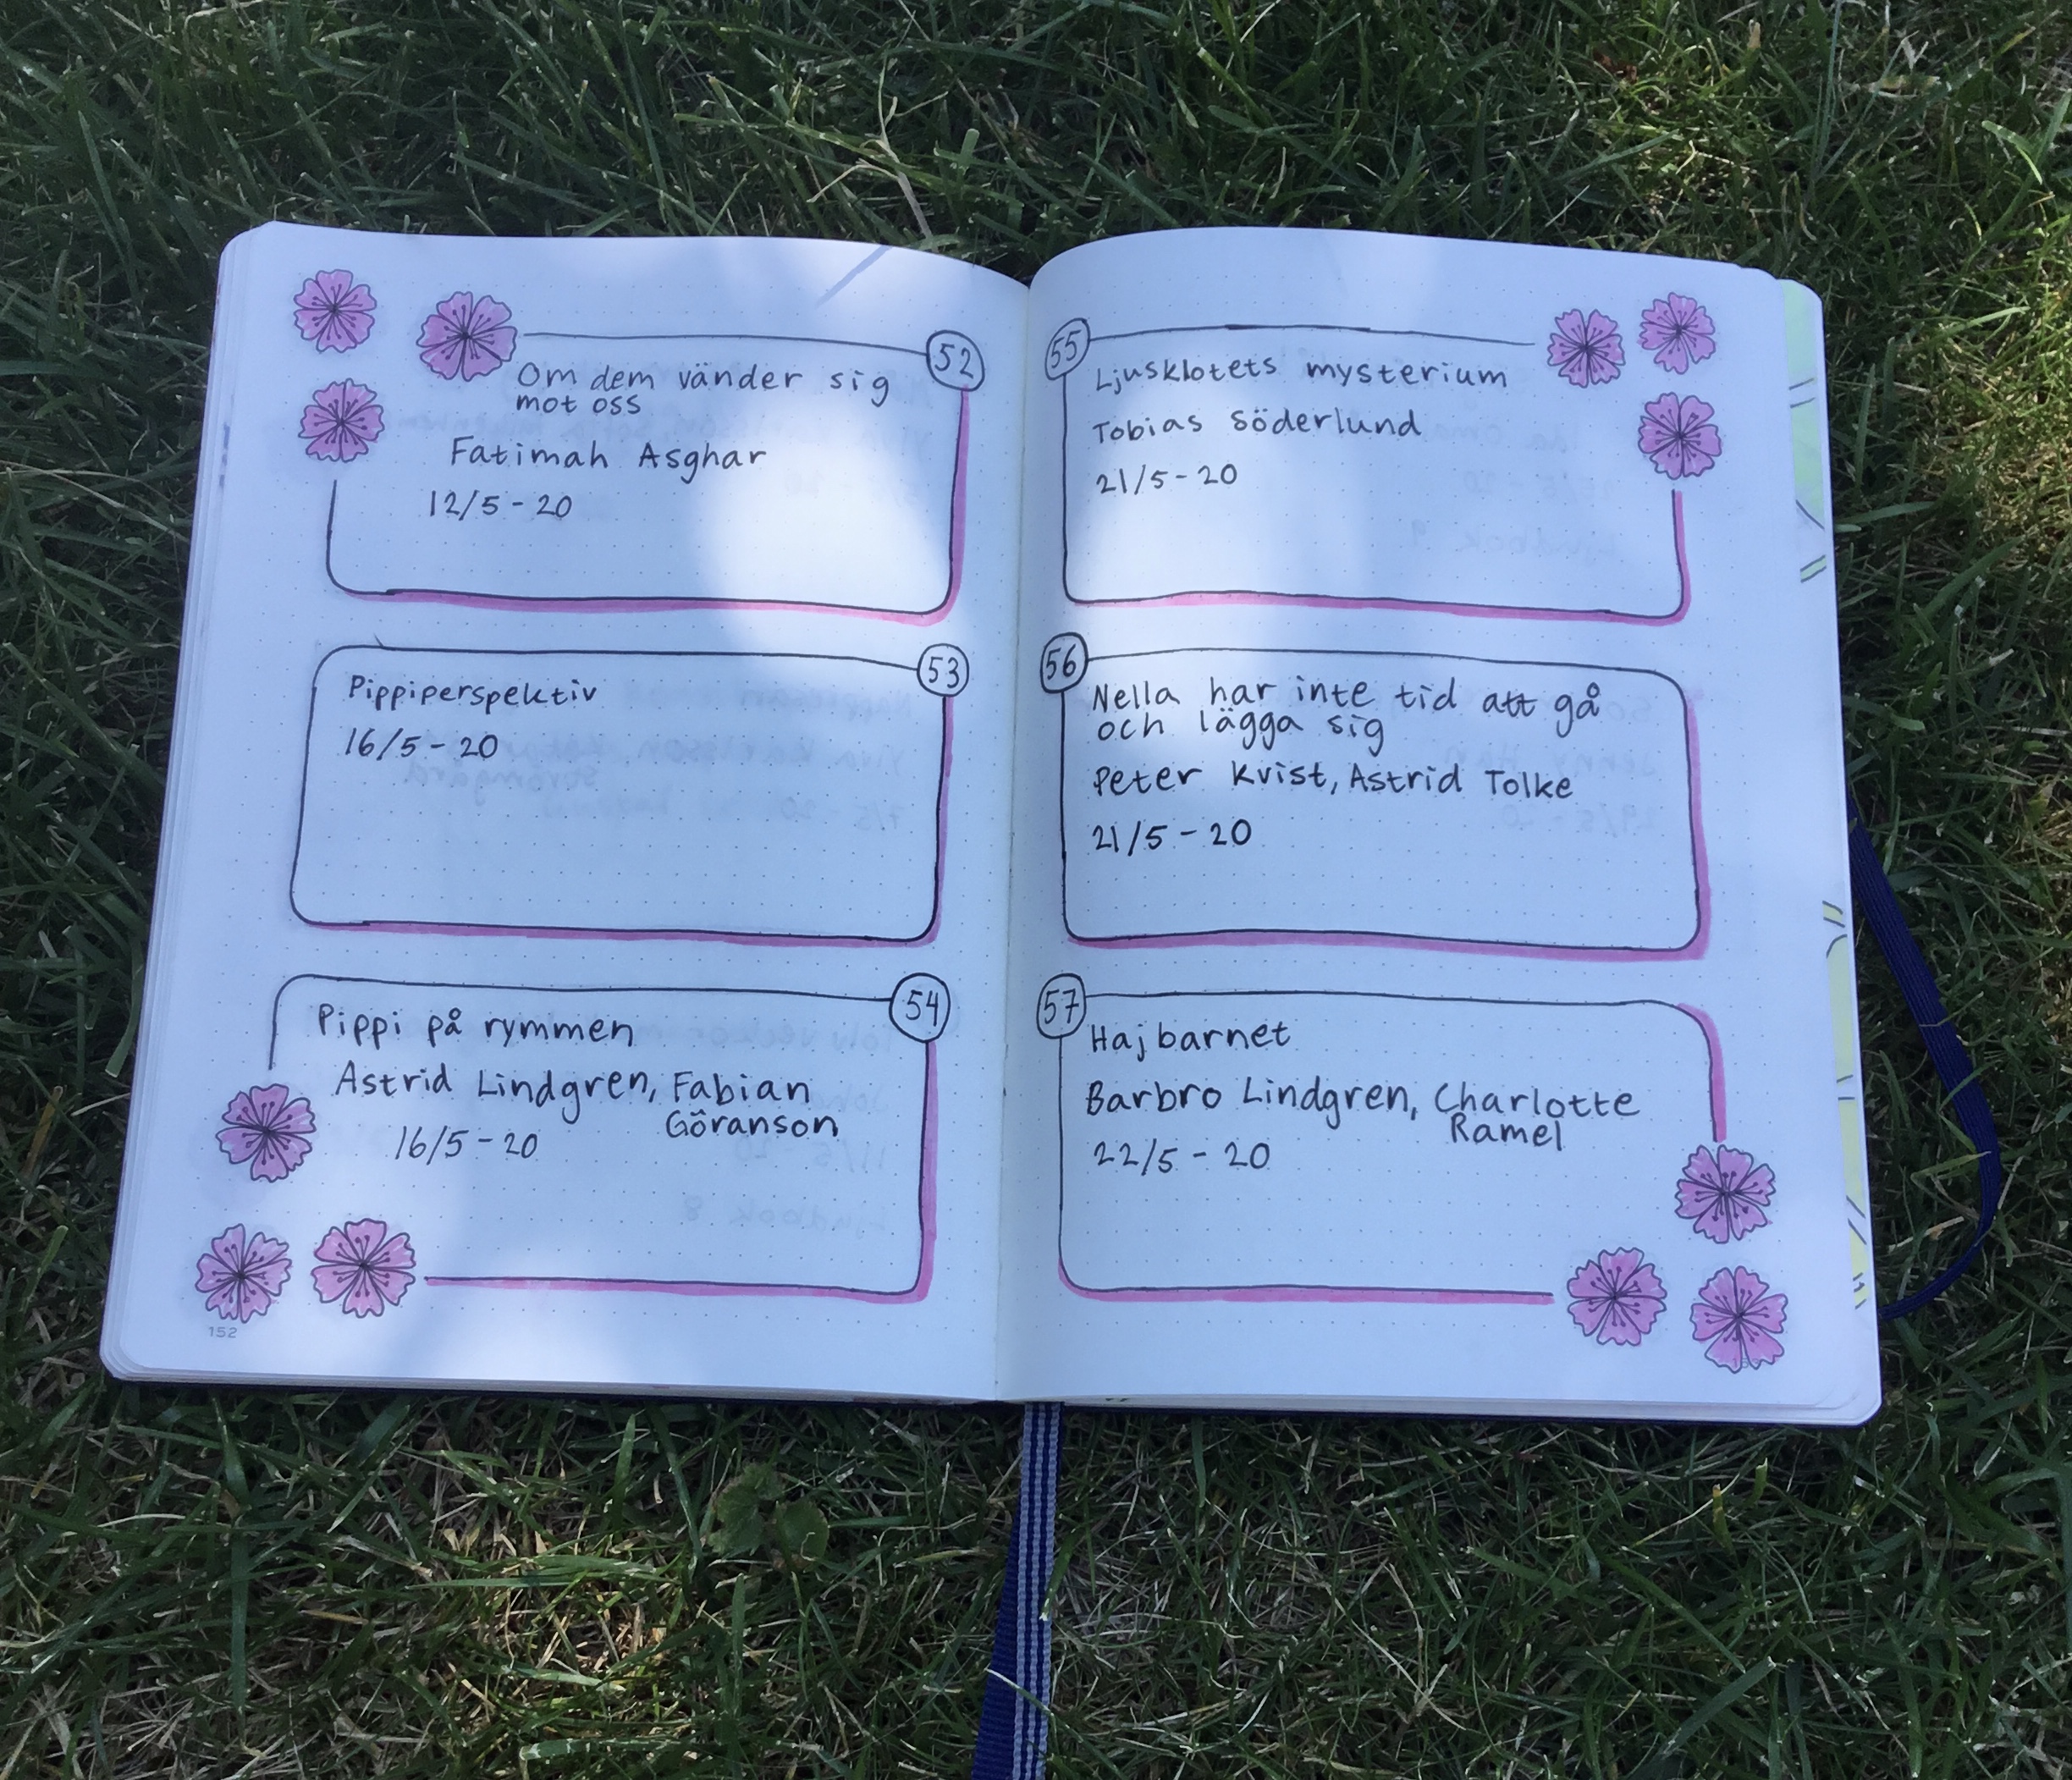 52
Om dem vänder sig
mot oss
Fatimah Asghar
12/5 - 20
53
Pippiperspektiv
16/5 - 20
54
Pippi på rymmen
Astrid Lindgren, Fabian
Göranson
16/5 - 20
152
55
Ljusklotets mysterium
Tobias Söderlund
21/5 - 20
56
Nella har inte tid att gå
och lägga sig
Peter Kvist, Astrid Tolke
21/5 - 20
57
Hajbarnet
Barbro Lindgren, Charlotte
Ramel
22/5 - 20